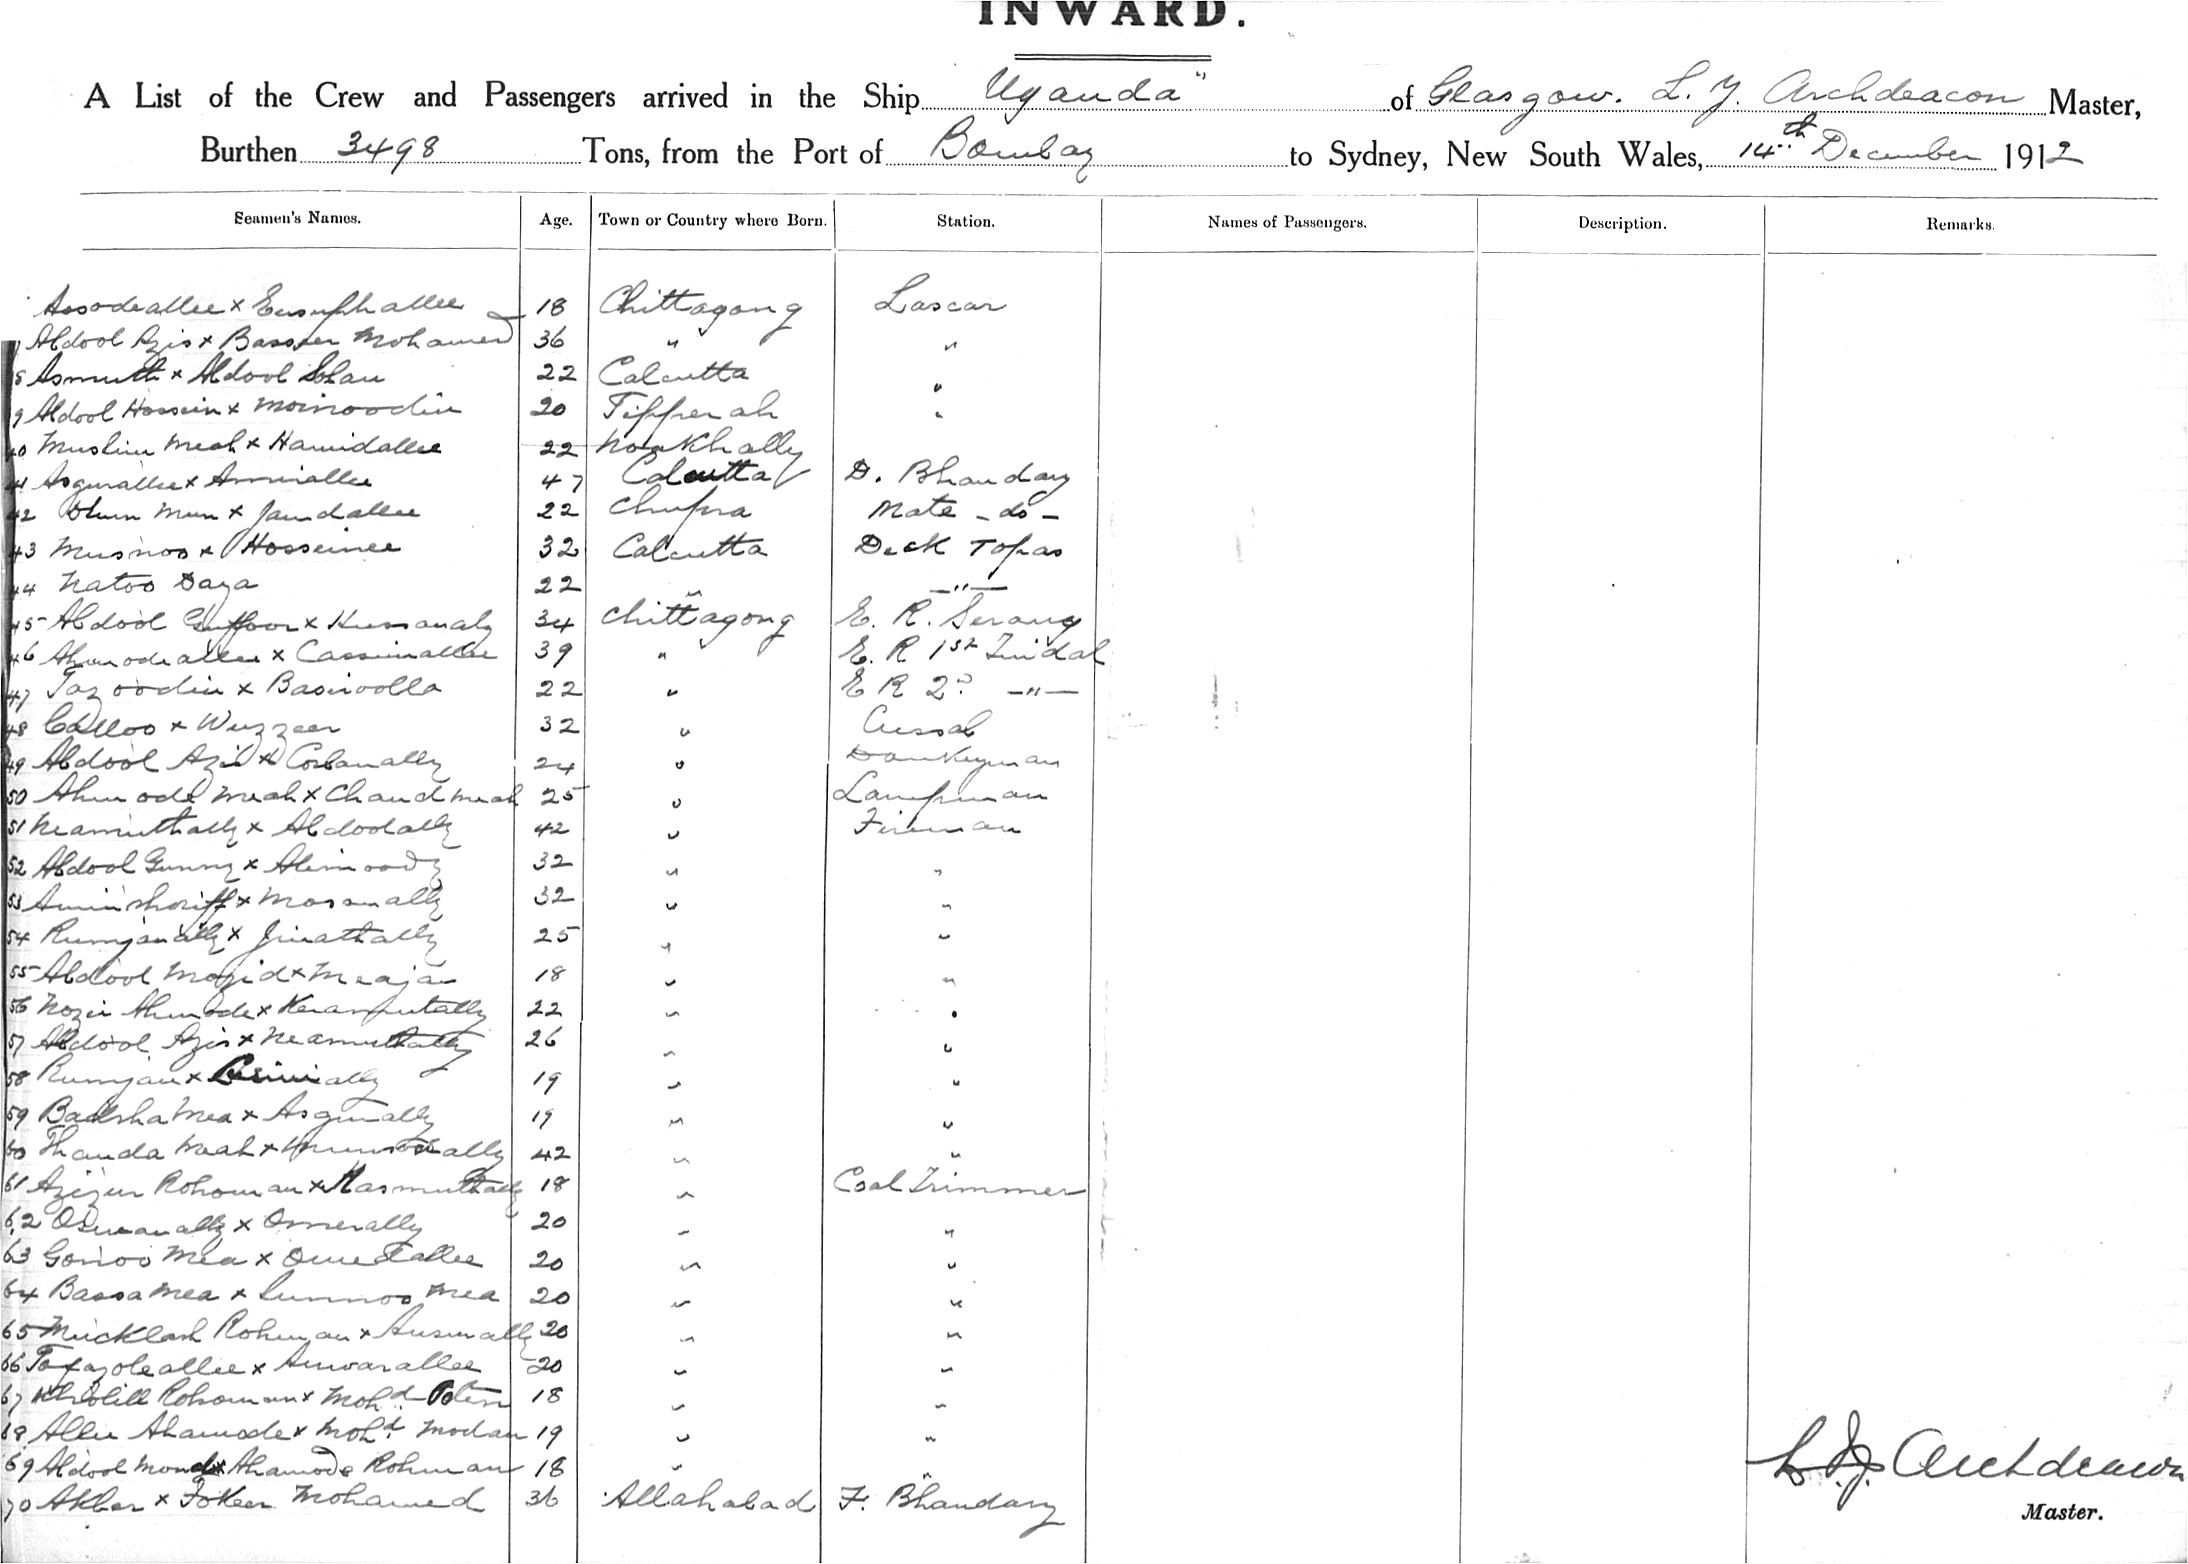 INWARD.
A List of the Crew and Passengers arrived in the Ship "Uganda" of Glasgow. L. Y. Archdeacon Master,
Burthen 3498 Tons, from the Port of Bombay to Sydney, New South Wales, 14th December 1912
Seamen's Names. Age. Town or Country where Born. Station. Names of Passengers. Description. Remarks.
Assodeallee x Eusuphallee 18 Chittagong Lascar
Abdool Azis x Basser Mohamed 36 " "
8 Asmuth x Abdool 22 Calcutta "
9 Abdool Hossein x Moinoodin 20 Tipperah "
40 Muslim Meah x Hamidallee 22 Noakhally
41 Asgurallee x Amirallee 47 Calcutta D. Bhandary
42 x Jamdallee 22 Chupra Mate -do-
43 Musnoo x Hosseinee 32 Calcutta Deck Topas
44 Natoo Daya 22 " -"-
45 Abdool Guffoor x Hussanaly 34 Chittagong E. R. Serang
46 Ahmodeallee x Cassimallee 39 " E. R 1st Tindal
47 Tazoodin x Basiroolla 22 " E R 2d -"-
48 Calloo x Wuzzeer 32 " Cussab
49 Abdool Aziz x Corbanally 24 " Donkeyman
50 Ahmode Meah x Chand Meah 25 " Lampman
51 Neamuthally x Abdoolally 42 " Fireman
52 Abdool Gunny x Alimoody 32 " "
53 Aminshoriff x Mosonally 32 " "
54 Rumjanally x Jinathally 25 " "
55 Abdool Mozid x Meajan 18 " "
56 Nozir Ahmode x Keramutally 22 " "
57 Abdool Azis x Neamuthally 26 " "
58 Rumjan x 19 " "
59 Badsha Mea x Asgurally 19 " "
60 Thanda Meah x 42 " "
61 Azizur Rohoman x Kasmuthally 18 " Coal Trimmer
62 Osmanally x Omerally 20 " "
63 Gonoo Mea x Omedallee 20 " "
64 Bassa Mea x Sunnoo Mea 20 " "
65 Mucklesh Rohman x Ausurally 20 " "
66 Tofazoleallee x Anwarallee 20 " "
67 Kholill Rohoman x Mohd. 18 " "
68 Allee Ahamode x Mohd. Modan 19 " "
69 Abdool x Ahamode Rohman 18 " "
70 Akber x Fokeer Mohamed 36 Allahabad F. Bhandary
L. Y. Archdeacon
Master.